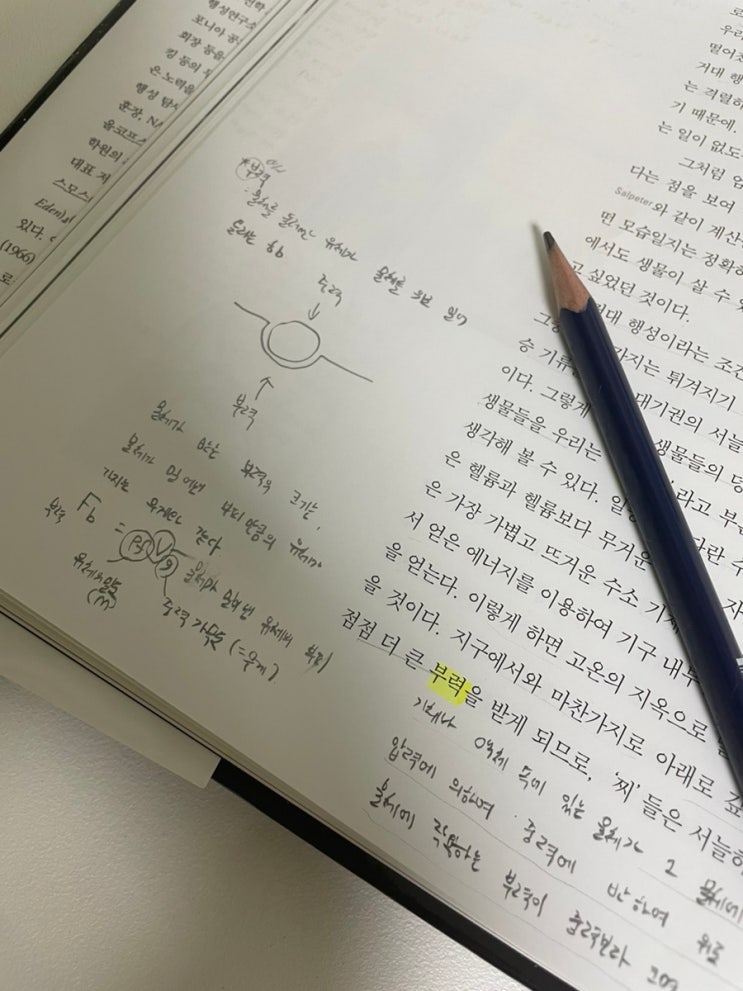 행성연구소
포니아 공
회장 등을
킹 등의
은 노력을
행성 탐사
훈장, NA
올코프스
학원의
대표 저
스모스
Eden)』
있다.
(1966)
로
우리
떨어진
거대 행
는 격렬하
기 때문에,
는 일이 없도
그처럼 엄
다는 점을 보여
Salpeter와 같이 계산
떤 모습일지는 정확히
에서도 생물이 살 수
고 싶었던 것이다.
거대 행성이라는 조건
승 기류 가지는 튀겨지기
이다. 그렇게 대기권의 서늘
생물들을 우리는 생물들의
생각해 볼 수 있다. 라고 부
은 헬륨과 헬륨보다 무거운 다란 수
은 가장 가볍고 뜨거운 수소 기체
서 얻은 에너지를 이용하여 기구 내부
을 얻는다. 이렇게 하면 고온의 지옥으로
을 것이다. 지구에서와 마찬가지로 아래로
점점 더 큰 부력을 받게 되므로, '찌'들은 서늘
*부력
물체를 둘러싼 유체가 물체를 위로 밀어
올리는 힘
중력
부력
물체가 받는 부력의 크기는,
물체가 밀어낸 부피 만큼의 유체가
가지는 무게와 같다
부력 Fb = ρVg
물체가 밀어낸 유체의 부피
유체의 밀도
(m)
중력 가속도 (=무게)
기체나 액체 속에 있는 물체가 그 물체에
압력에 의하여 중력에 반하여 위로
물체에 작용하는 부력이 중력보다